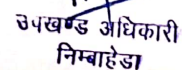 उपखण्ड अधिकारी
निम्बाहेडा